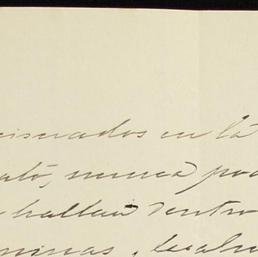 cisnados en la
ató, nunca pod
hallan dentro
minas,